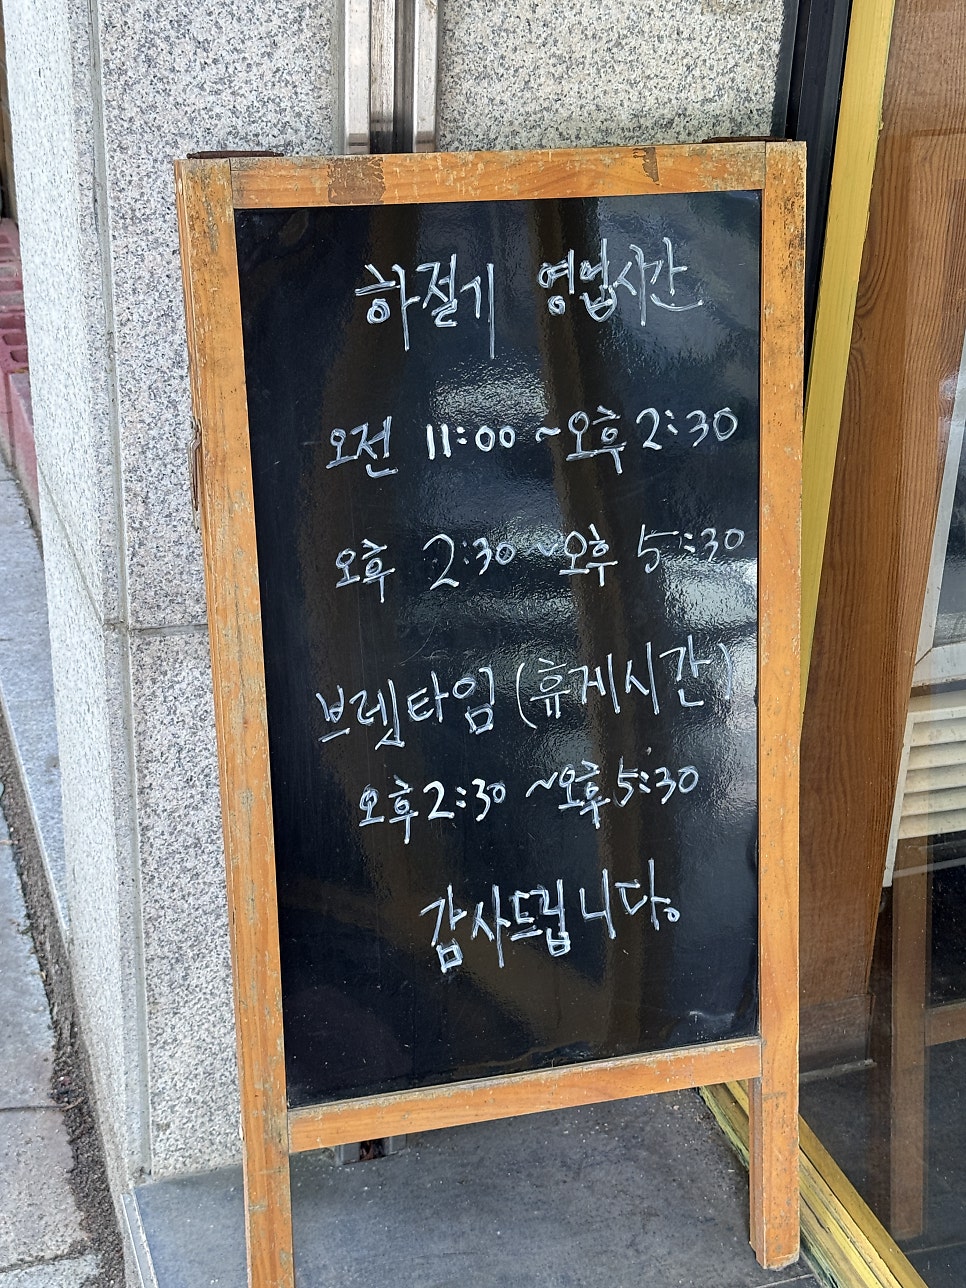 하절기 영업시간
오전 11:00 ~ 오후 2:30
오후 2:30 ~ 오후 5:30
브렛타임 (휴게시간)
오후 2:30 ~ 오후 5:30
감사드립니다.